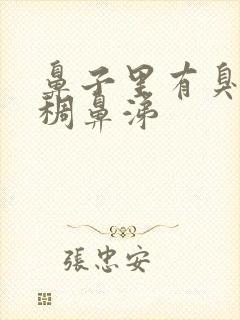 鼻子里有臭
稠鼻涕
張忠安